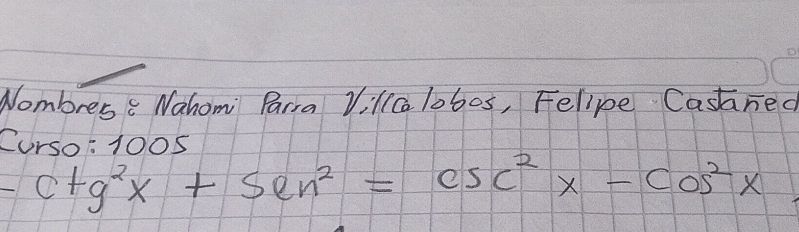 Nombres: Nahomi Parra Villalobos, Felipe Castañed
Curso: 1005
- ctg²x + Sen² = csc² x - Cos² x